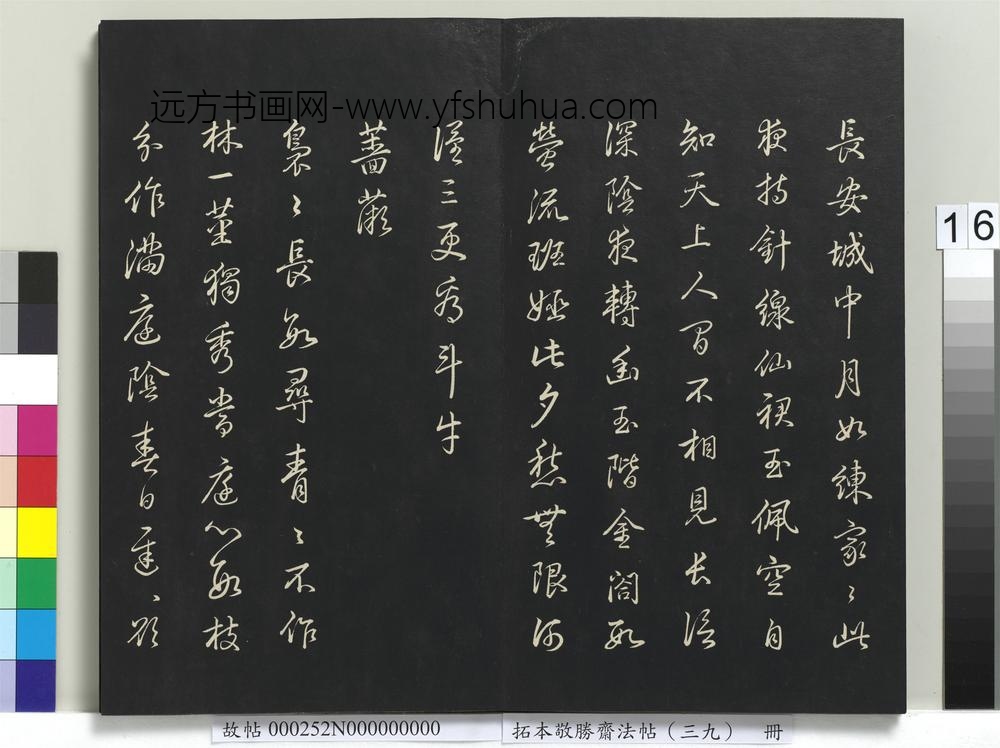 远方书画网-www.yfshuhua.com
長安城中月如練家〻此
夜持針線仙裙玉佩空自
知天上人間不相見長信
深陰夜轉幽玉階金閣數
螢流班姬此夕愁無限河
漢三更看斗牛
薔薇
裊〻長數尋青〻不作
林一莖獨秀當庭心數枝
分作滿庭陰春日遲〻欲
16
故帖 000252N000000000
拓本敬勝齋法帖（三九） 冊